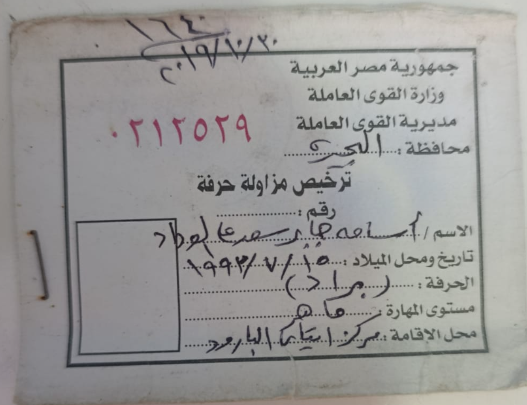 ١٦٤٠
٢٠١٩/١٠/٣٠
جمهورية مصر العربية
وزارة القوى العاملة
مديرية القوى العاملة
٠٢١٢٥٢٩
محافظة : البحيرة
ترخيص مزاولة حرفة
رقم :
الاسم / أسامه جابر سعد
تاريخ ومحل الميلاد : ١٩٩٣/٧/١٥
الحرفة : (براد)
مستوى المهارة : ماهر
محل الاقامة : مركز ايتاى البارود